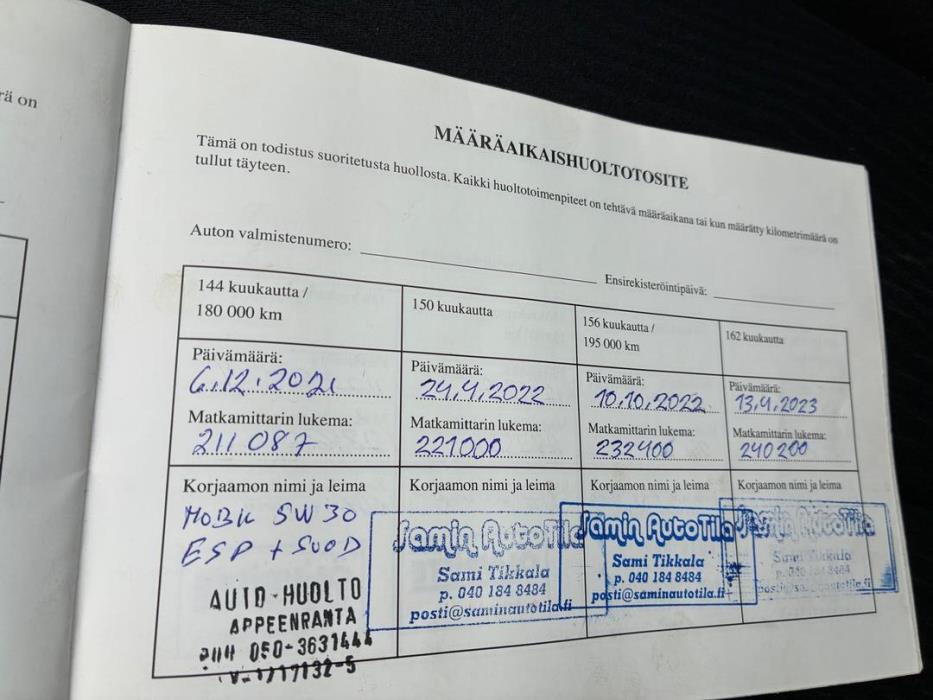 rä on
MÄÄRÄAIKAISHUOLTOTOSITE
Tämä on todistus suoritetusta huollosta. Kaikki huoltotoimenpiteet on tehtävä määräaikana tai kun määrätty kilometrimäärä on
tullut täyteen.
Auton valmistenumero:
Ensirekisteröintipäivä:
144 kuukautta /
180 000 km
Päivämäärä:
6.12.2021
Matkamittarin lukema:
211 087
Korjaamon nimi ja leima
MOBIL 5W30
ESP + SUOD
AUTO-HUOLTO
APPEENRANTA
PUH 050-3631444
Y-1717132-5
150 kuukautta
Päivämäärä:
24.4.2022
Matkamittarin lukema:
221000
Korjaamon nimi ja leima
Samin AutoTila
Sami Tikkala
p. 040 184 8484
posti@saminautotila.fi
156 kuukautta /
195 000 km
Päivämäärä:
10.10.2022
Matkamittarin lukema:
232400
Korjaamon nimi ja leima
Samin AutoTila
Sami Tikkala
p. 040 184 8484
posti@saminautotila.fi
162 kuukautta
Päivämäärä:
13.4.2023
Matkamittarin lukema:
240200
Korjaamon nimi ja leima
Samin AutoTila
Sami Tikkala
p. 040 184 8484